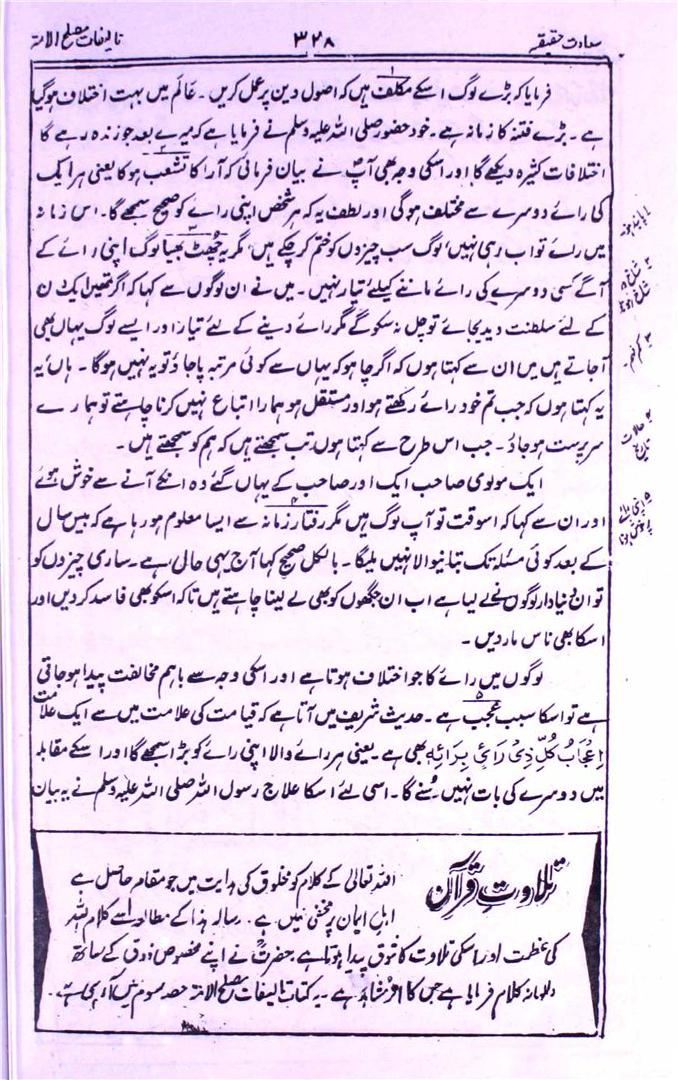 سعادت حقیقیہ ۳۲۸ تالیفات مصلح الامۃ
فرمایا کہ بڑے لوگ اسکے مکلف ہیں کہ اصول دین پر عمل کریں ۔ عالَم میں بہت اختلاف ہوگیا
ہے ۔ بڑے فتنہ کا زمانہ ہے ۔ خود حضور صلی اللہ علیہ وسلم نے فرمایا ہے کہ میرے بعد جو زندہ رہے گا
اختلافات کثیرہ دیکھے گا اور اسکی وجہ بھی آپؐ نے بیان فرمائی کہ آرا کا تشعب ہوگا یعنی ہر ایک
کی رائے دوسرے سے مختلف ہوگی اور لطف یہ کہ ہر شخص اپنی رائے کو صحیح سمجھے گا ۔ اس زمانہ
میں رائے تو اب رہی نہیں، لوگ سب چیزوں کو ختم کرچکے ہیں، مگر یہ چھٹ بھیا لوگ اپنی رائے کے
آگے کسی دوسرے کی رائے ماننے کیلئے تیار نہیں ۔ میں نے ان لوگوں سے کہا کہ اگر تمھیں ایک دن
کے لئے سلطنت دیدیجائے تو چل نہ سکوگے مگر رائے دینے کے لئے تیار، اور ایسے لوگ یہاں بھی
آجاتے ہیں میں ان سے کہتا ہوں کہ اگر چاہو کہ یہاں سے کوئی مرتبہ پاجاؤ تو یہ نہیں ہوگا ۔ ہاں یہ
یہ کہتا ہوں کہ جب تم خود رائے رکھتے ہو اور مستقل ہو ہمارا اتباع نہیں کرنا چاہتے تو ہمارے
سرپرست ہوجاؤ ۔ جب اس طرح سے کہتا ہوں تب سمجھتے ہیں کہ ہم کو سمجھتے ہیں ۔
ایک مولوی صاحب ایک اور صاحب کے یہاں گئے وہ انکے آنے سے خوش ہوئے
اور ان سے کہا کہ اسوقت تو آپ لوگ ہیں مگر رفتار زمانہ سے ایسا معلوم ہو رہا ہے کہ بیس سال
کے بعد کوئی مسئلہ تک بتانیوالا نہیں ملیگا ۔ بالکل صحیح کہا آج یہی حال ہے ۔ ساری چیزوں کو
تو ان دنیادار لوگوں نے لے لیا ہے اب ان جگہوں کو بھی لے لینا چاہتے ہیں تاکہ اسکو بھی فاسد کردیں اور
اسکا بھی ناس ماردیں ۔
لوگوں میں رائے کا جو اختلاف ہوتا ہے اور اسکی وجہ سے باہم مخالفت پیدا ہوجاتی
ہے تو اسکا سبب عجب ہے ۔ حدیث شریف میں آتا ہے کہ قیامت کی علامت میں سے ایک علامت
اِعْجَابُ كُلِّ ذِیْ رَائیٍ بِرَائِهٖ بھی ہے ۔ یعنی ہر رائے والا اپنی رائے کو بڑا سمجھے گا اور اسکے مقابلہ
میں دوسرے کی بات نہیں سُنے گا ۔ اسی لئے اسکا علاج رسول اللہ صلی اللہ علیہ وسلم نے یہ بیان
۱ پابند ہونا
۲ شاخ در شاخ ہونا
۳ کم فہم
۴ حالات
۵
تلاوتِ قرآن
اللہ تعالیٰ کے کلام کو مخلوق کی ہدایت میں جو مقام حاصل ہے
اہل ایمان پر مخفی نہیں ہے ۔ رسالہ ہذا کے مطالعہ سے کلام اللہ
کی عظمت اور اسکی تلاوت کا شوق پیدا ہوتا ہے، حضرتؒ نے اپنے مخصوص ذوق کے ساتھ
والہانہ کلام فرمایا ہے جس کا اثر مشاہد ہے ۔ یہ کتاب تالیفات مصلح الامۃ حصہ سوم میں آرہی ہے ۔